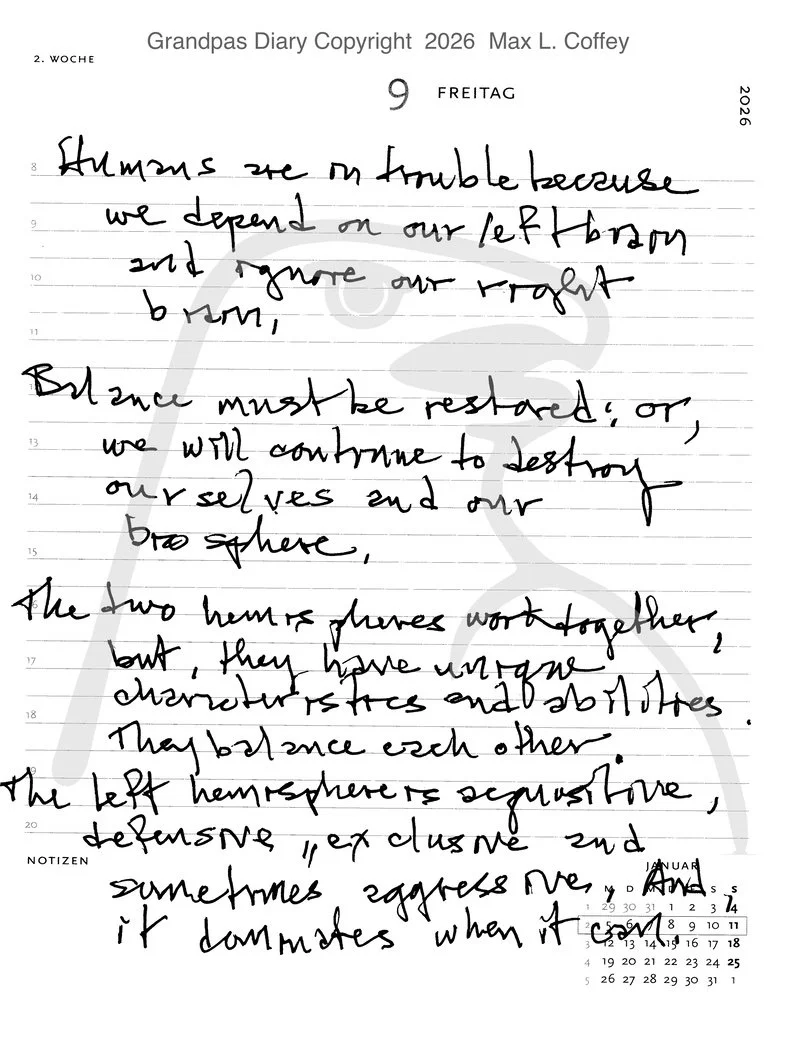 Grandpas Diary Copyright 2026 Max L. Coffey
2. WOCHE
9 FREITAG
2026
8
Humans are in trouble because
we depend on our left brain
9
and ignore our right
10
brain,
11
Balance must be restored; or,
13
we will continue to destroy
14
ourselves and our
biosphere,
15
The two hemispheres work together,
but, they have unique
17
characteristics and abilities.
18
They balance each other.
The left hemisphere is acquisitive,
20
defensive, exclusive and
NOTIZEN
JANUAR
sometimes aggressive, And
it dominates when it can.
M D M D F S S
1 29 30 31 1 2 3 4
2 5 6 7 8 9 10 11
3 12 13 14 15 16 17 18
4 19 20 21 22 23 24 25
5 26 27 28 29 30 31 1